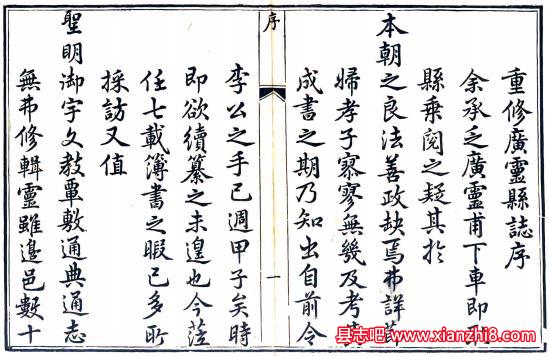 重修廣靈縣誌序
余承乏廣靈甫下車即
縣乘閱之疑其於
本朝之良法善政缺焉弗詳節
婦孝子寥寥無幾及考其
成書之期乃知出自前令
序
一
李公之手已週甲子矣時
即欲續纂之未遑也今蒞
任七載簿書之暇已多所
採訪又值
聖明御宇文教覃敷通典通志
無弗修輯靈雖邊邑數十
县志吧www.xianzhi8.com